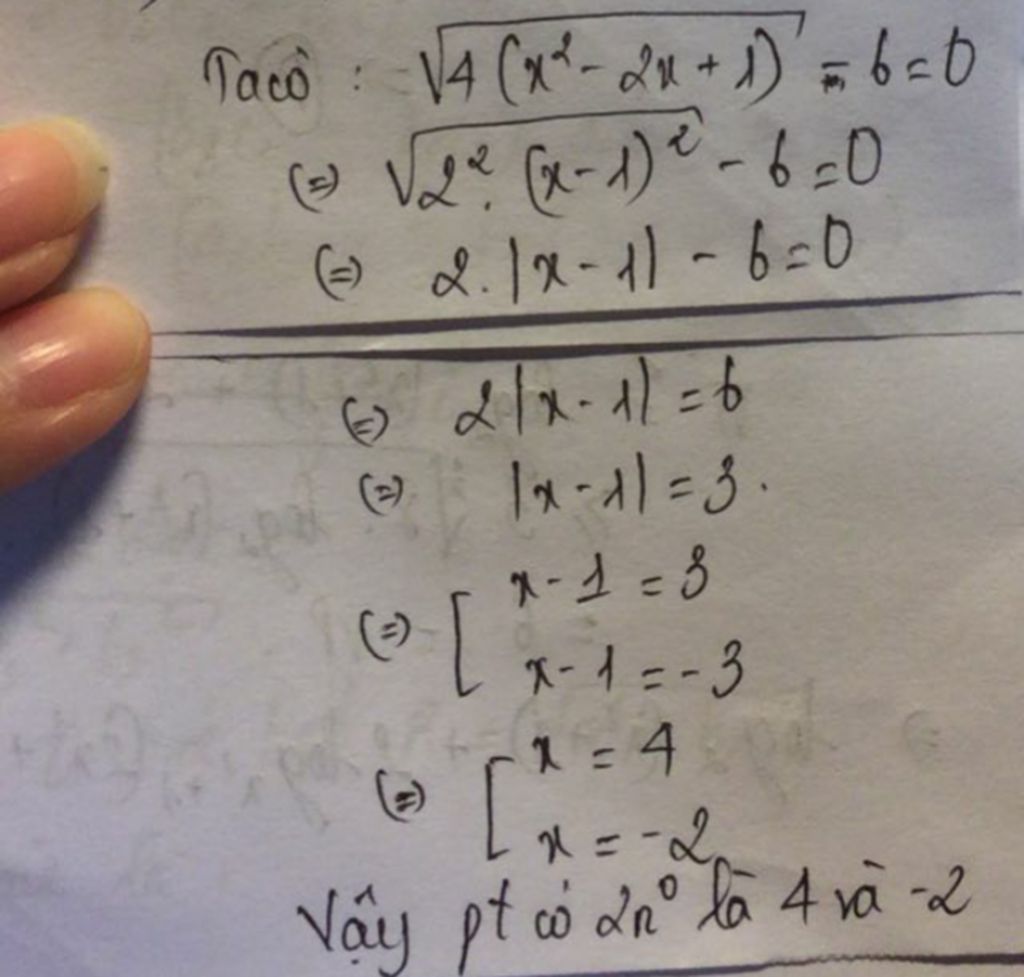 Ta có : √4(x² - 2x + 1) - 6 = 0
(=) √2². (x-1)² - 6 = 0
(=) 2. |x-1| - 6 = 0
(=) 2|x-1| = 6
(=) |x-1| = 3.
(=) [ x-1 = 3
x-1 = -3
(=) [ x = 4
x = -2
Vậy pt có 2n⁰ là 4 và -2